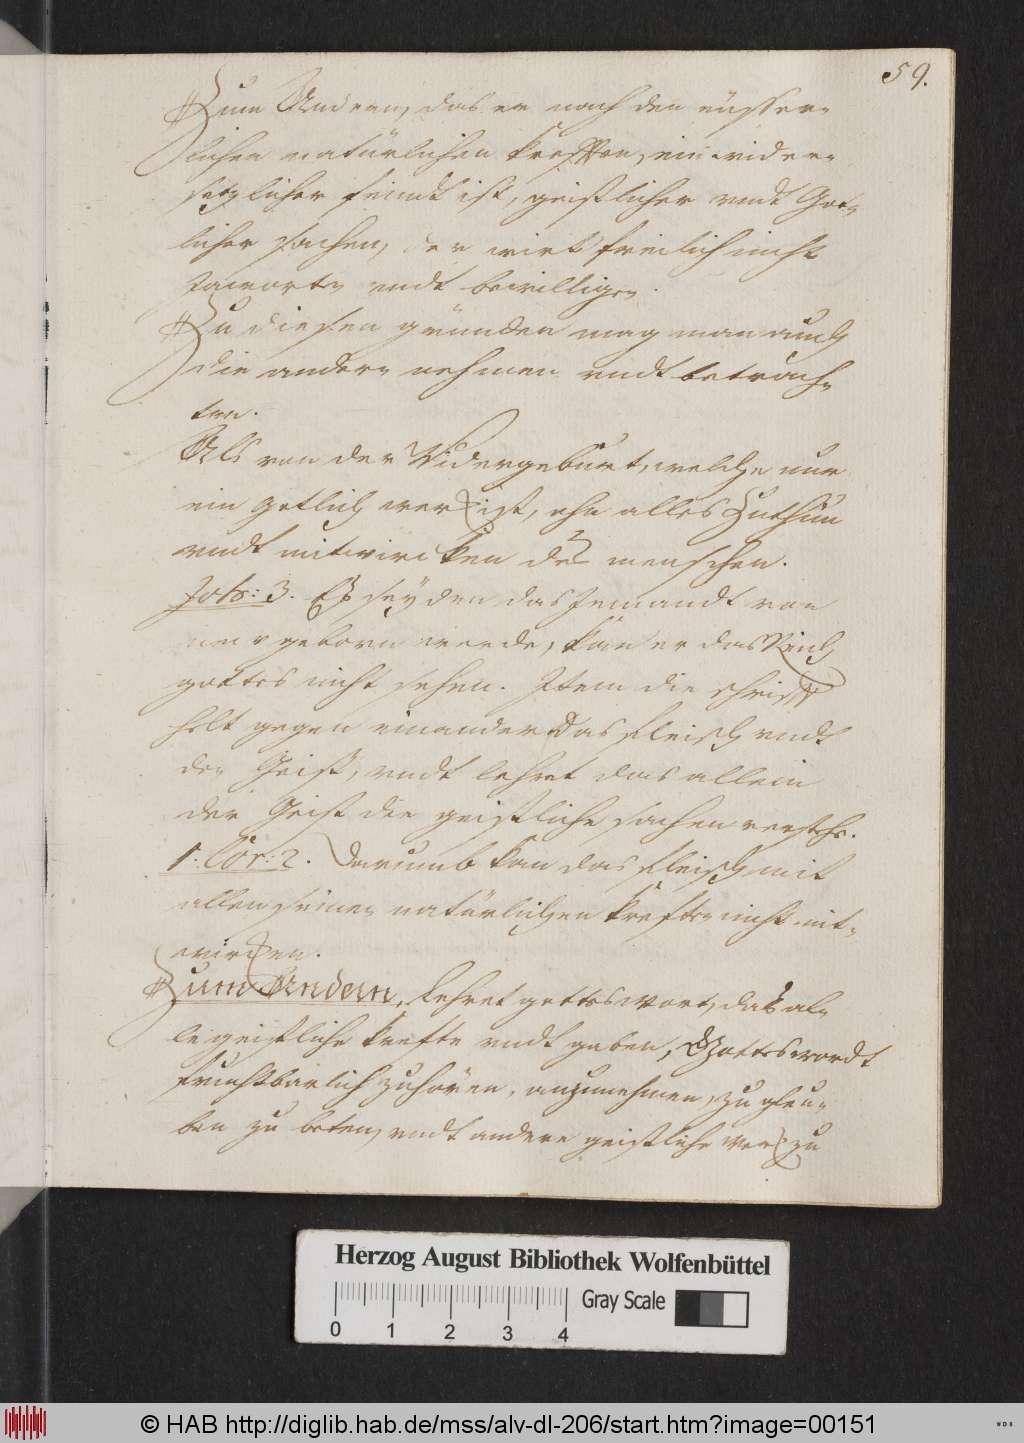 59.
Zum Andern, das er nach den eüsser-
lichen natürlichen kreffften, ein wider-
setzlicher feindt ist, geistlicher vndt Got-
licher sachen, der wirt freilich nicht
Jaworten vndt bewilligen.
Zu diesen gründen mag man auch
die andern nehmen vndt betrach-
ten.
Als von der Widergeburt, welche nur
ein gotlich werk ist, ohn alles Zuthun
vndt mitwircken des menschen.
Joh: 3. Es sey den das Jemandt von
new geborn werde, kan er das Reich
gottes nicht sehen. Item die schrifft
helt gegen einander das fleisch vndt
den Geist, vndt lehret das allein
der Geist die geistliche sachen versteh.
1. Cor: 2. Darumb kan das fleisch mit
allen seinen natürlichen kreften nicht mit-
wircken.
Zum Andern, lehret gottes wort, das al-
le geistliche krefte vndt gaben, Gottes wordt
fruchtbarlich zuhören, anzunehmen, zu gleu-
ben zu beten, vndt andere geistliche werk zu
Herzog August Bibliothek Wolfenbüttel
0 1 2 3 4 Gray Scale
© HAB http://diglib.hab.de/mss/alv-dl-206/start.htm?image=00151